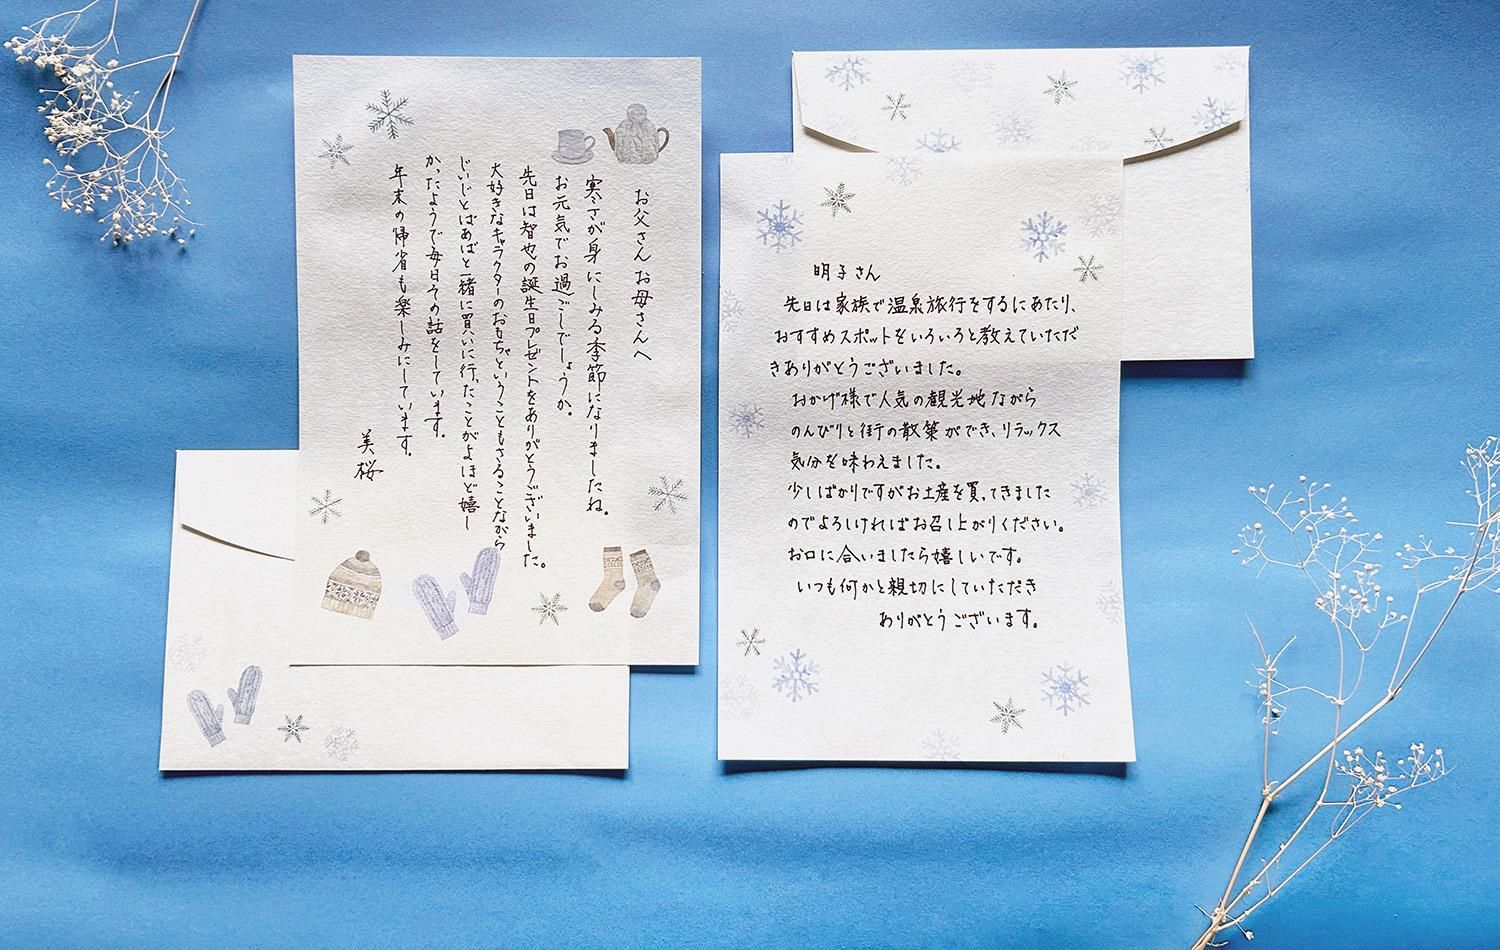 お父さんお母さんへ
寒さが身にしみる季節になりましたね。
お元気でお過ごしでしょうか。
先日は智也の誕生日プレゼントをありがとうございました。
大好きなキャラクターのおもちゃということもさることながら
じいじとばあばと一緒に買いに行ったことがよほど嬉し
かったようで毎日その話をしています。
年末の帰省も楽しみにしています。
美桜
明子さん
先日は家族で温泉旅行をするにあたり、
おすすめスポットをいろいろと教えていただ
きありがとうございました。
おかげ様で人気の観光地ながら
のんびりと街の散策ができ、リラックス
気分を味わえました。
少しばかりですがお土産を買ってきました
のでよろしければお召し上がりください。
お口に合いましたら嬉しいです。
いつも何かと親切にしていただき
ありがとうございます。